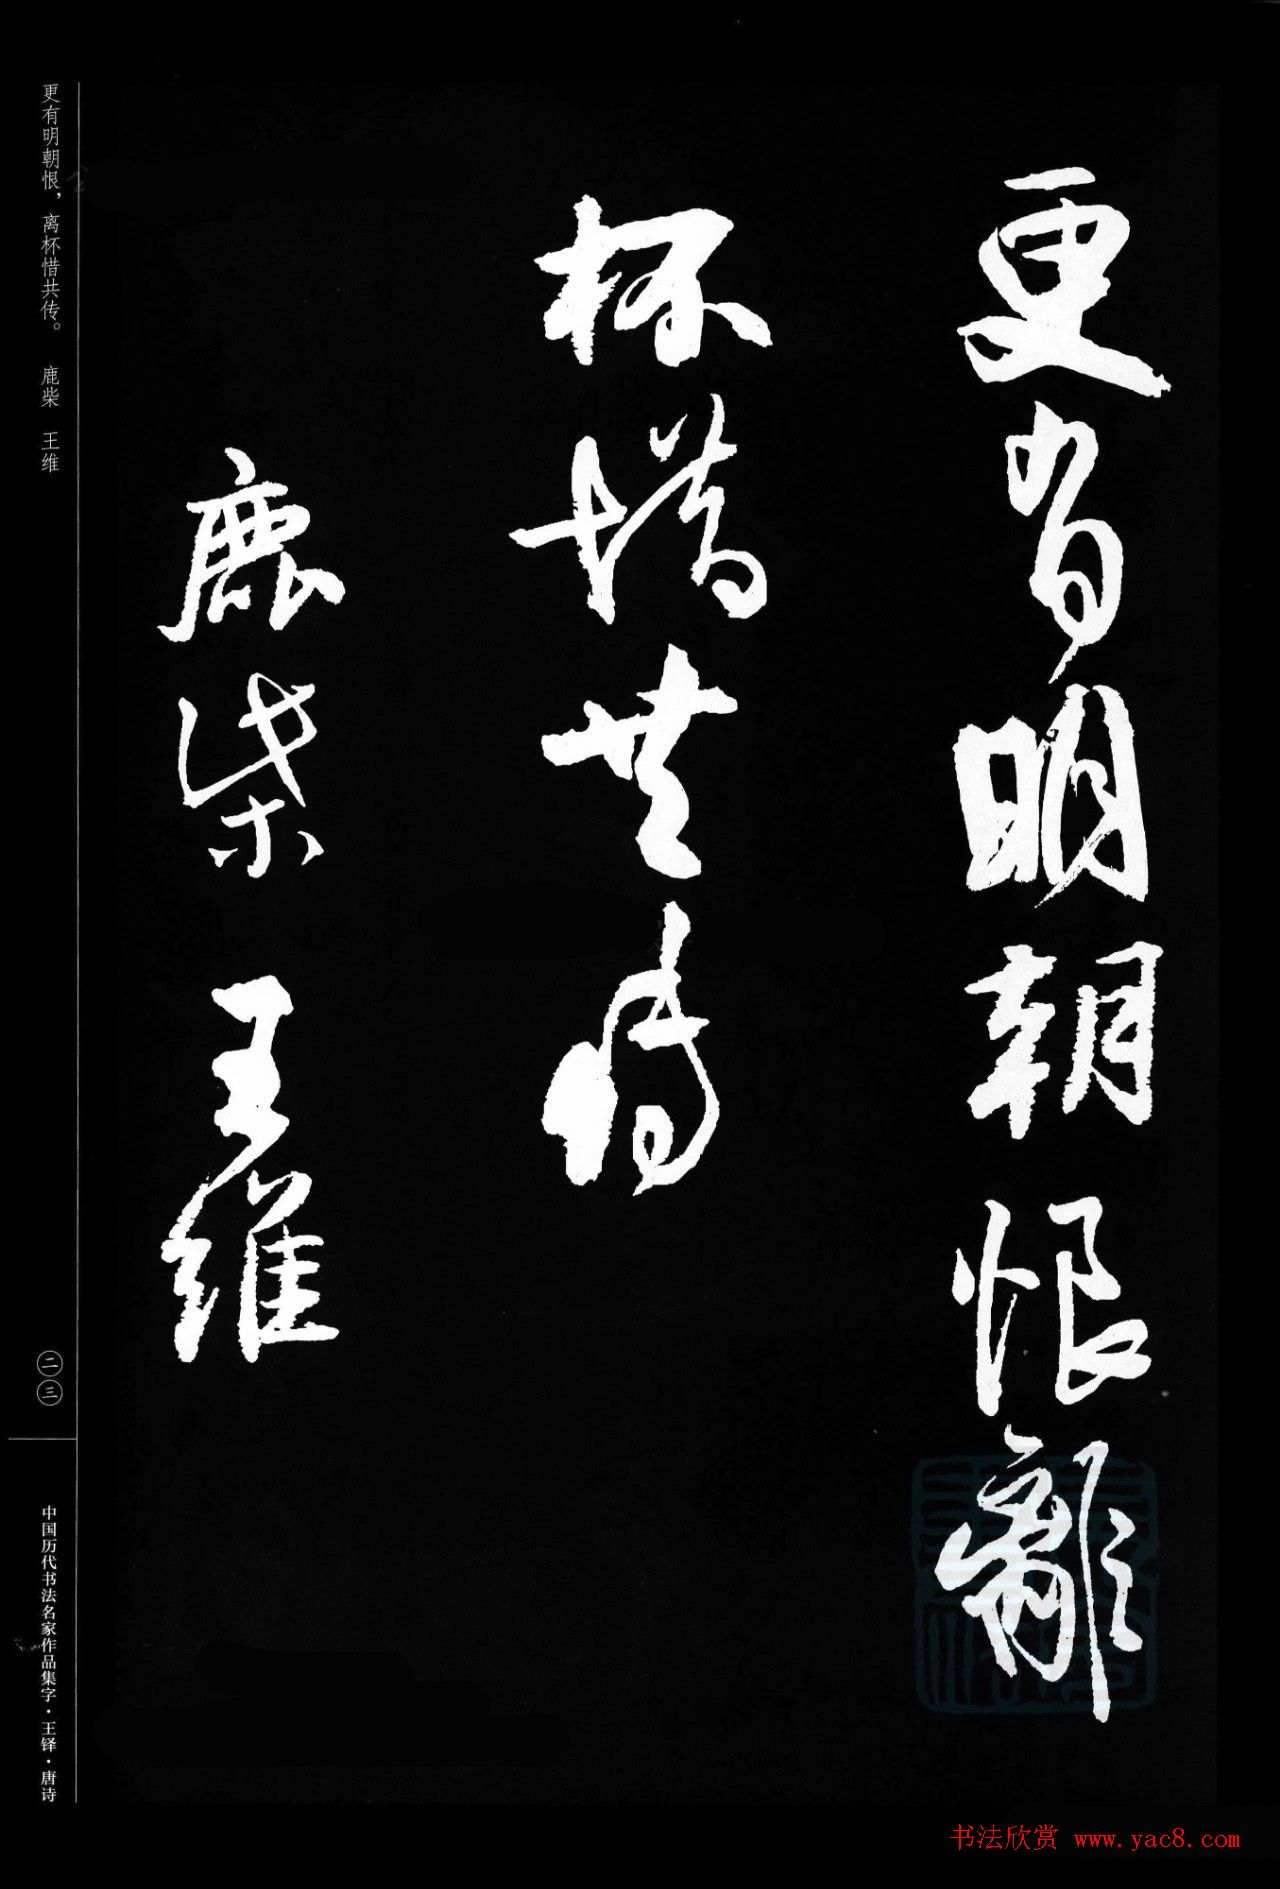 更有明朝恨離
杯惜共傳
鹿柴 王維
更有明朝恨，离杯惜共传。 鹿柴 王维
二三
中国历代书法名家作品集字·王铎·唐诗
书法欣赏 www.yac8.com